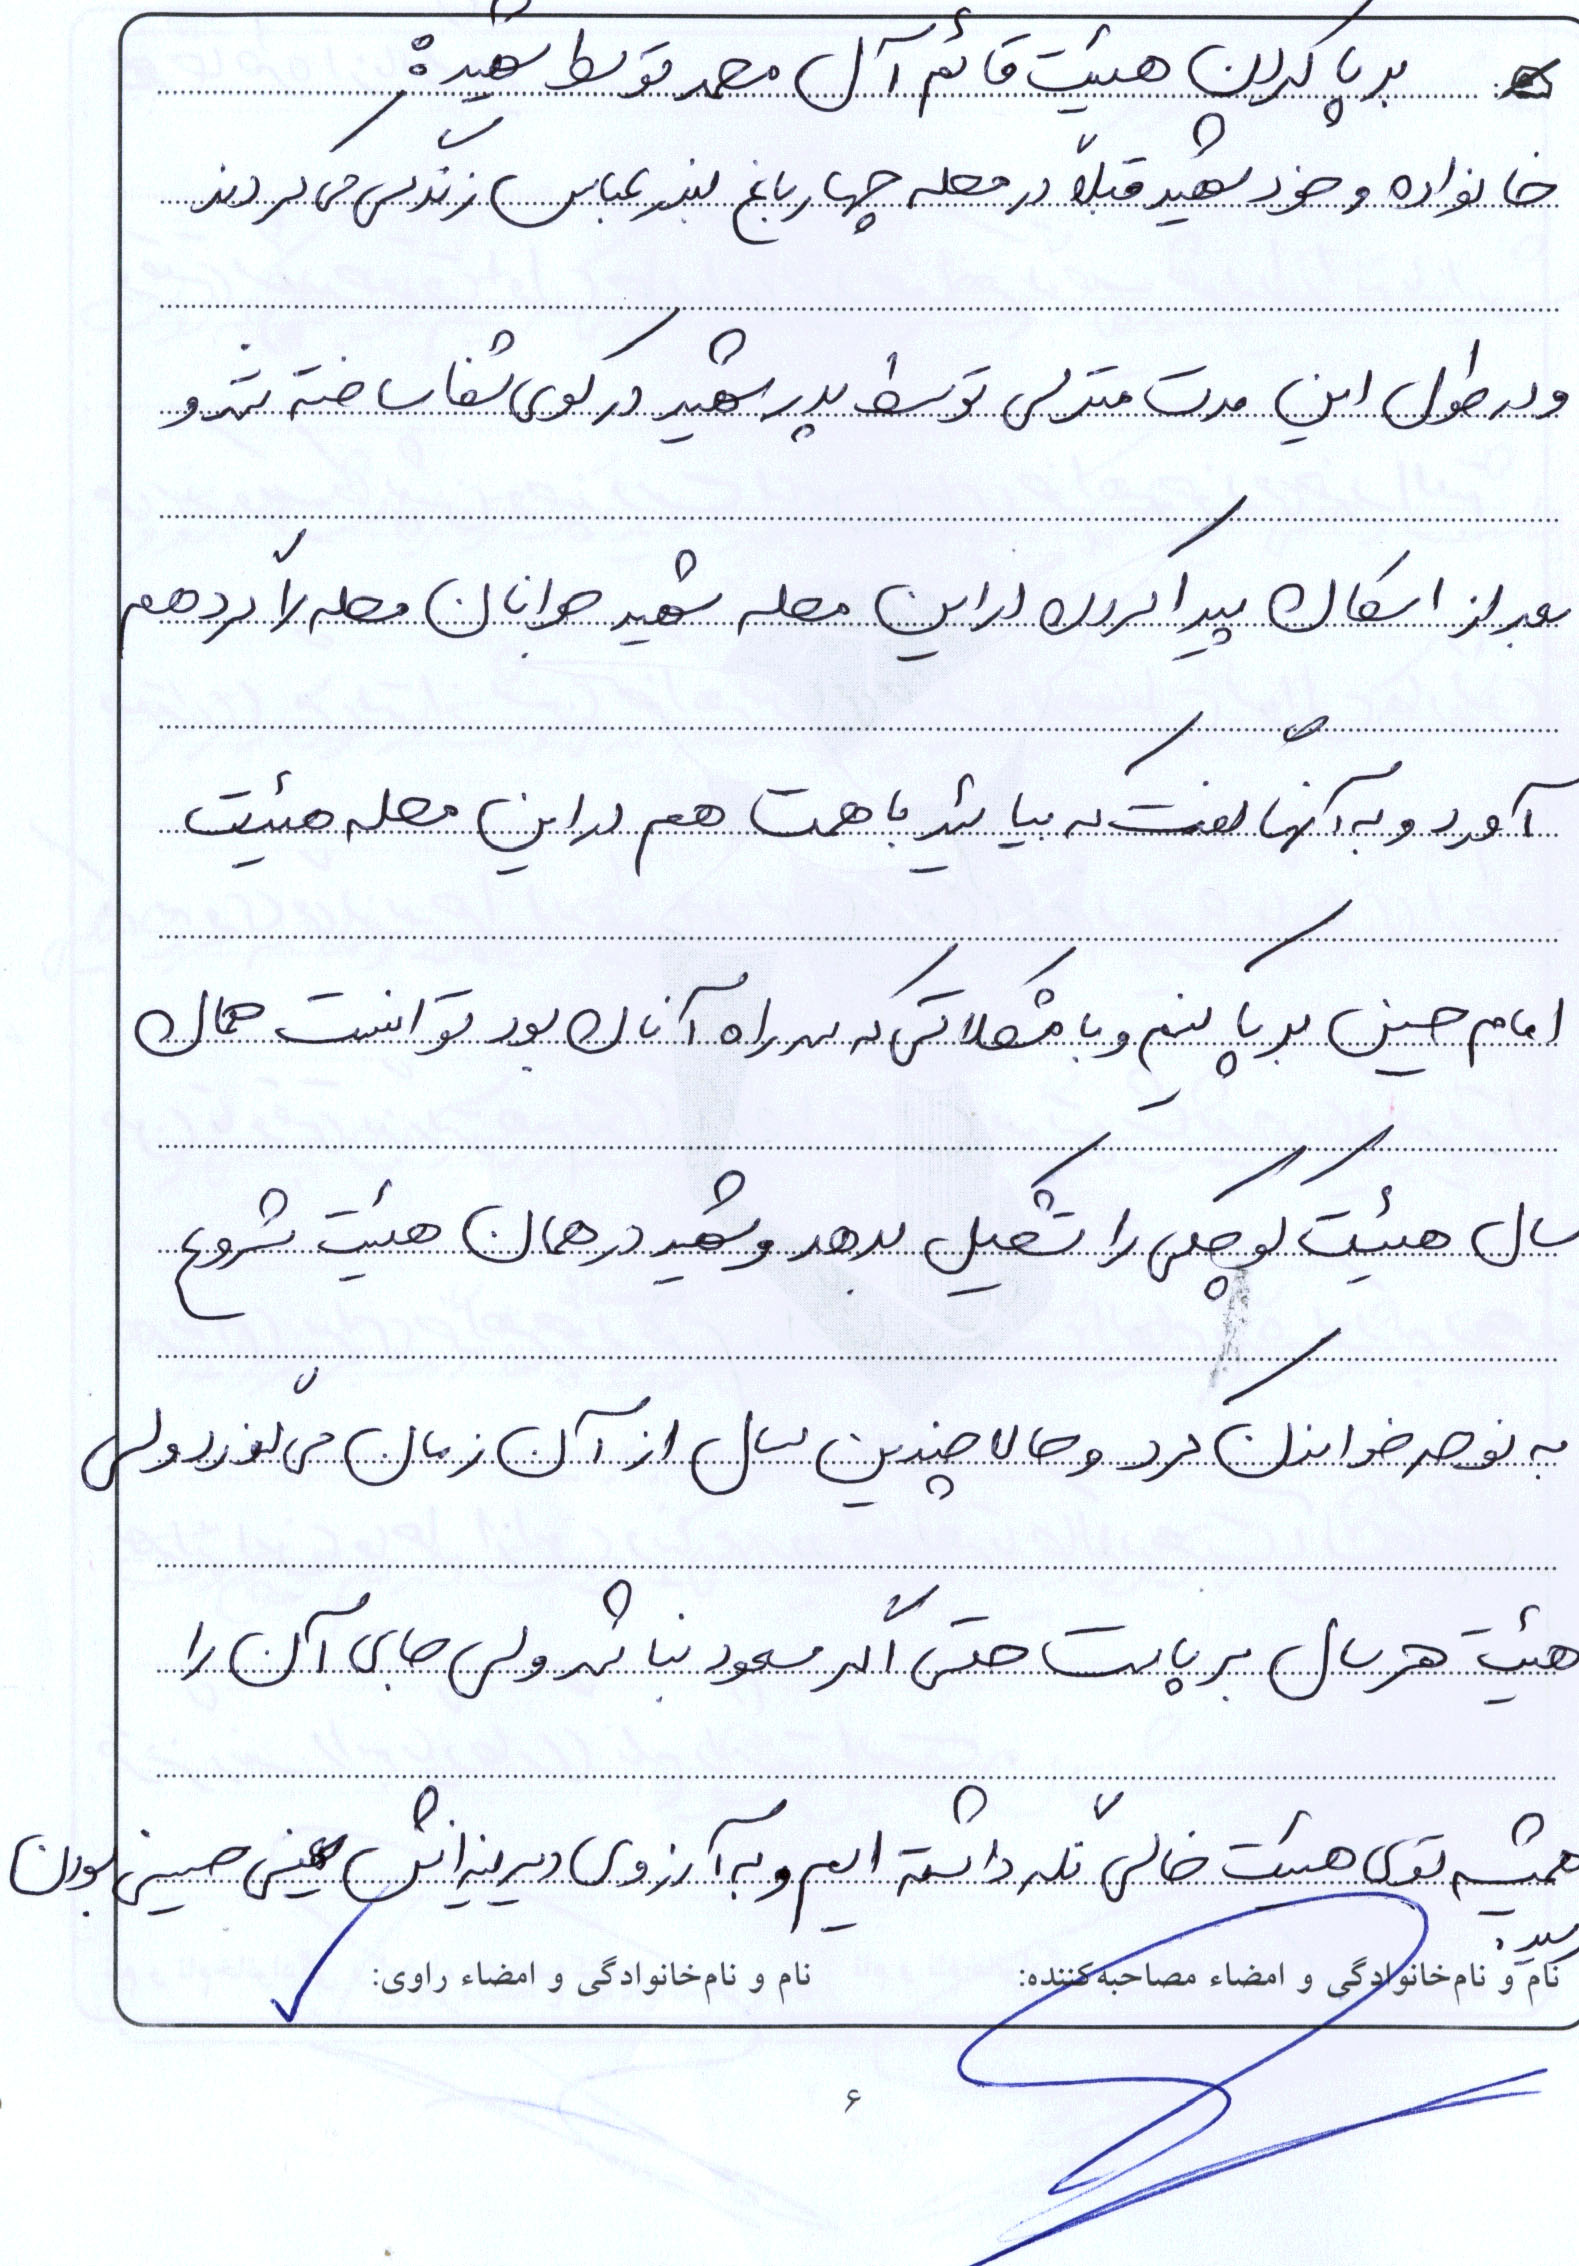 برپا کردن هیئت قائم آل محمد توسط شهید:
خانواده و خود شهید قبلاً در محله چهار باغ بندرعباس زندگی می کردند
و در طول این مدت منزلی توسط پدر شهید در کوی شفا ساخته شد و
بعد از اسکان پیدا کردن در این محله شهید جوانان محله را گرد هم
آورد و به آنها گفت که بیائید با همت هم در این محله هیئت
امام حسین برپا کنیم و با مشکلاتی که سر راه آنان بود توانست همان
سال هیئت کوچکی را تشکیل بدهد و شهید در همان هیئت شروع
به نوحه خواندن کرد و حالا چندین سال از آن زمان می گذرد ولی
هیئت هر سال برپاست حتی اگر مسعود نباشد ولی جای آن را
همیشه توی هیئت خالی نگه داشته ایم و به آرزوی دیرینه اش یعنی حسینی بودن
رسید.
نام و نام‌خانوادگی و امضاء مصاحبه‌کننده: نام و نام‌خانوادگی و امضاء راوی:
۶